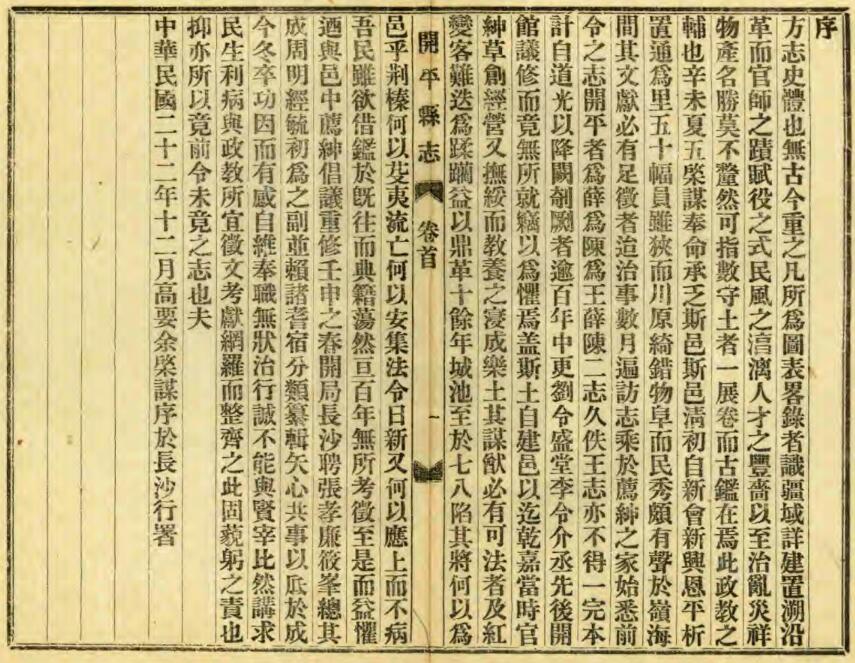 序
方志史體也無古今重之凡所爲圖表畧錄者識疆域詳建置溯沿
革而官師之蹟賦役之式民風之湻漓人才之豐嗇以至治亂災祥
物產名勝莫不釐然可指數守土者一展卷而古鑑在焉此政教之
輔也辛未夏五棨謀奉命承乏斯邑斯邑淸初自新會新興恩平析
置通爲里五十幅員雖狹而川原綺錯物阜而民秀頗有聲於嶺海
間其文獻必有足徵者迨治事數月遍訪志乘於薦紳之家始悉前
令之志開平者爲薛爲陳爲王薛陳二志久佚王志亦不得一完本
計自道光以降闕剞劂者逾百年中更劉令盛堂李令介丞先後開
館議修而竟無所就竊以爲懼焉盖斯土自建邑以迄乾嘉當時官
紳草創經營又撫綏而教養之寖成樂土其謀猷必有可法者及紅
變客難迭爲蹂躪益以鼎革十餘年城池至於七八陷其將何以爲
開平縣志
卷首
一
邑乎荆榛何以芟夷流亡何以安集法令日新又何以應上而不病
吾民雖欲借鑑於旣往而典籍蕩然亘百年無所考徵至是而益懼
迺與邑中薦紳倡議重修壬申之春開局長沙聘張孝廉筱峯總其
成周明經毓初爲之副並賴諸耆宿分類纂輯矢心共事以底於成
今冬卒功因而有感自維奉職無狀治行誠不能與賢宰比然講求
民生利病與政教所宜徵文考獻網羅而整齊之此固藐躬之責也
抑亦所以竟前令未竟之志也夫
中華民國二十二年十二月高要余棨謀序於長沙行署